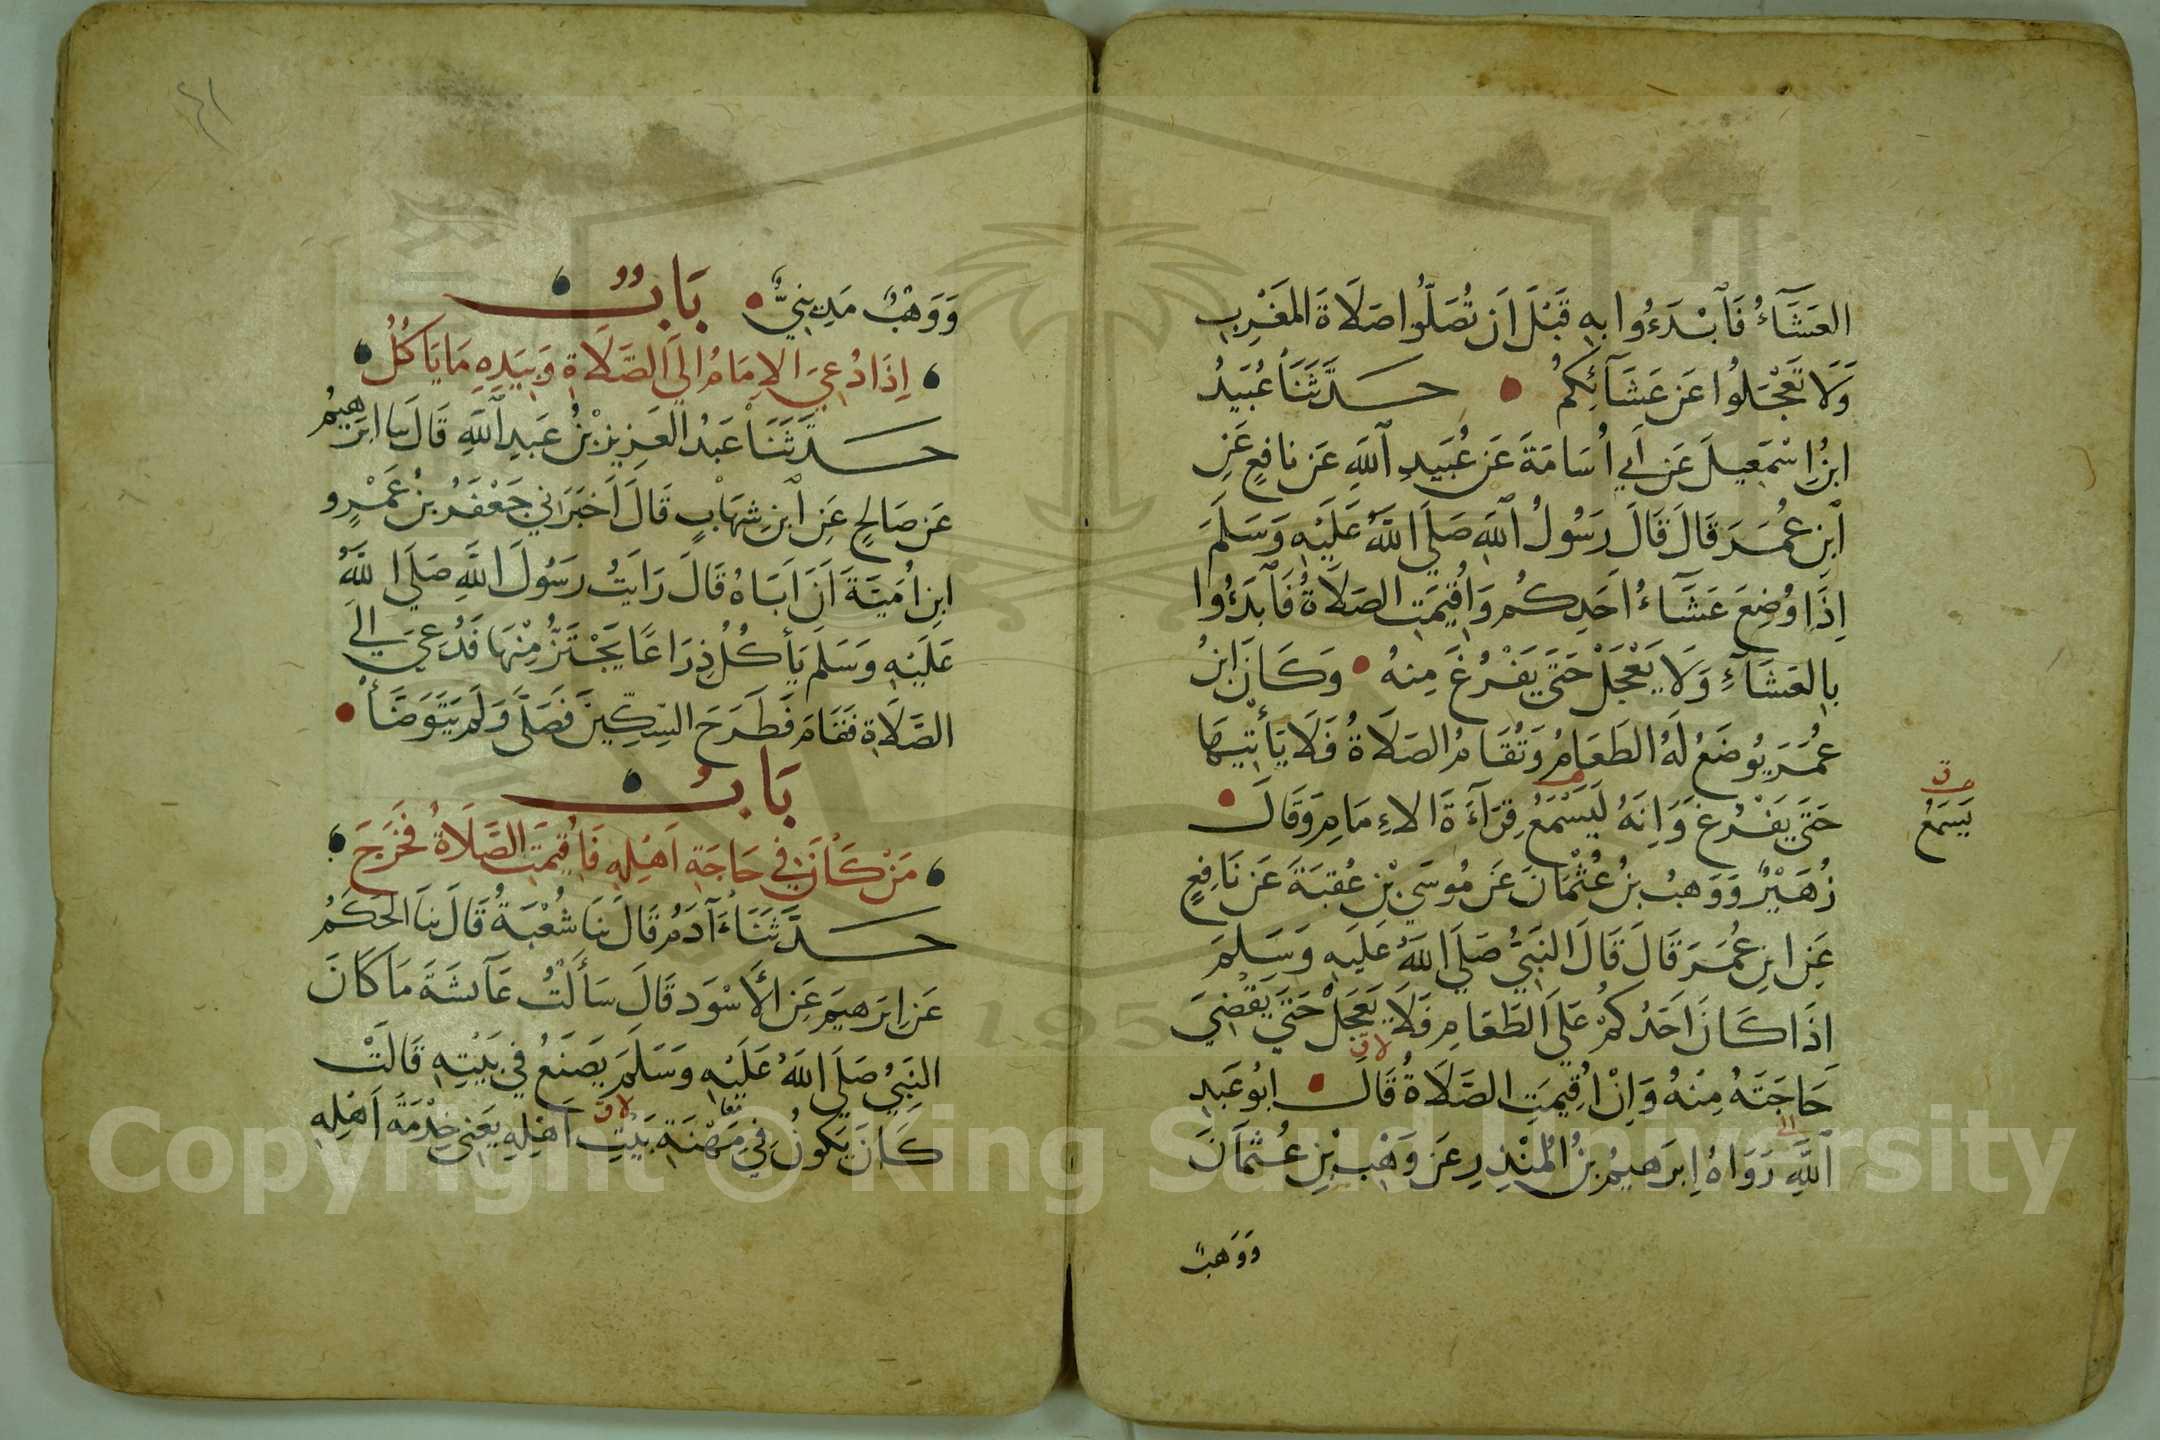 العَشَآءُ فَٱبْدَءُوا بِهِ قَبْلَ اَن تُصَلُّوا صَلَاةَ المَغْرِبِ
وَلَا تَعْجَلُوا عَن عَشَآئِكُمْ حَدَّثَنَا عُبَيْدُ
ابنُ اِسْمٰعِيلَ عَن اَبِي اُسَامَةَ عَن عُبَيدِ ٱللَّهِ عَن نافِعٍ عَنِ
ٱبْنِ عُمَرَ قَالَ قَالَ رَسُولُ ٱللَّهِ صَلَّي اللَّهُ عَلَيْهِ وَسَلَّمَ
اِذَا وُضِعَ عَشَآءُ اَحَدِكُم وَاُقِيمَتِ الصَلَاةُ فَٱبْدَءُوا
بِالعَشَآءِ وَلَا يَعْجَلْ حَتَّى يَفْرُغَ مِنهُ وَكَانَ ابنُ
عُمَرَ يُوضَعُ لَهُ الطَعَامُ وَتُقَامُ الصَلَاةُ فَلَا يَأتِيهَا
حَتَّى يَفْرُغَ وَاِنَهُ لَيَسْمَعُ قِرَآءَةَ الاِمَامِ وَقَالَ
ق
يَسمَعُ
زُهَيْرٌ وَوَهبُ بنُ عُثْمَانَ عَن مُوسَي بْنِ عُقبَةَ عَن نَافِعٍ
عَنِ ابنِ عُمَرَ قَالَ قَالَ النَبِيُّ صَلَي اللَّهُ عَلَيهِ وَسَلَّمَ
اِذَا كَانَ اَحَدُكُمْ عَلَي الطَّعَامِ فَلَا يَعجَلْ حَتَّي يَقْضِيَ
حَاجَتَهُ مِنْهُ وَاِنْ اُقِيمَتِ الصَّلَاةُ قَالَ ابُو عَبدِ
ٱللَّهِ رَوَاهُ اِبرَهِيمُ بنُ المُنْذِرِ عَن وَهْبِ بْنِ عُثْمَانَ
وَوَهبٌ
وَوَهْبٌ مَدِينِيٌّ بَابٌ
اِذَا دُعِيَ الاِمَامُ اِلَي الصَّلَاةِ وَبِيَدِهِ مَا يَاكُلُ
حَدَّثَنَا عَبْدُ العَزِيزِ بْنُ عَبدِ ٱللَّهِ قَالَ نا ابرَهِيمُ
عَن صَالِحٍ عَنِ ٱبْنِ شِهَابٍ قَالَ اَخبَرَنِي جَعْفَرُ بنُ عَمْرِو
ابنِ اُمَيَّةَ اَنَ اَبَاهُ قَالَ رَايتُ رَسُولَ اللَّهِ صَلَي اللَّهُ
عَلَيْهِ وَسَلَّمَ يَأكُلُ ذِرَاعًا يَجْتَزُّ مِنْهَا فَدُعِيَ اِلَي
الصَّلَاةِ فَقَامَ فَطَرَحَ السِكِّينَ فَصَلَّى وَلَم يَتَوَضَّأ
بَابُ
مَنْ كَانَ فِي حَاجَةِ اَهْلِهِ فَاُقِيمَتِ الصَّلَاةُ فَخَرَجَ
حَدَّثَنَا آدَمُ قَالَ نَا شُعْبَةُ قَالَ نَا الحَكَمُ
عَن اِبرَهِيمَ عَنِ الأَسْوَدِ قَالَ سَأَلْتُ عَآىشَةَ مَا كَانَ
النَبِيُّ صَلَي اللَّهُ عَلَيْهِ وَسَلَّمَ يَصْنَعُ فِي بَيْتِهِ قَالَتْ
كَانَ يَكُونُ فِي مَهْنَةِ بَيْتِ اَهْلِهِ يَعْنِي خِدْمَةَ اَهْلِهِ
Copyright © King Saud University